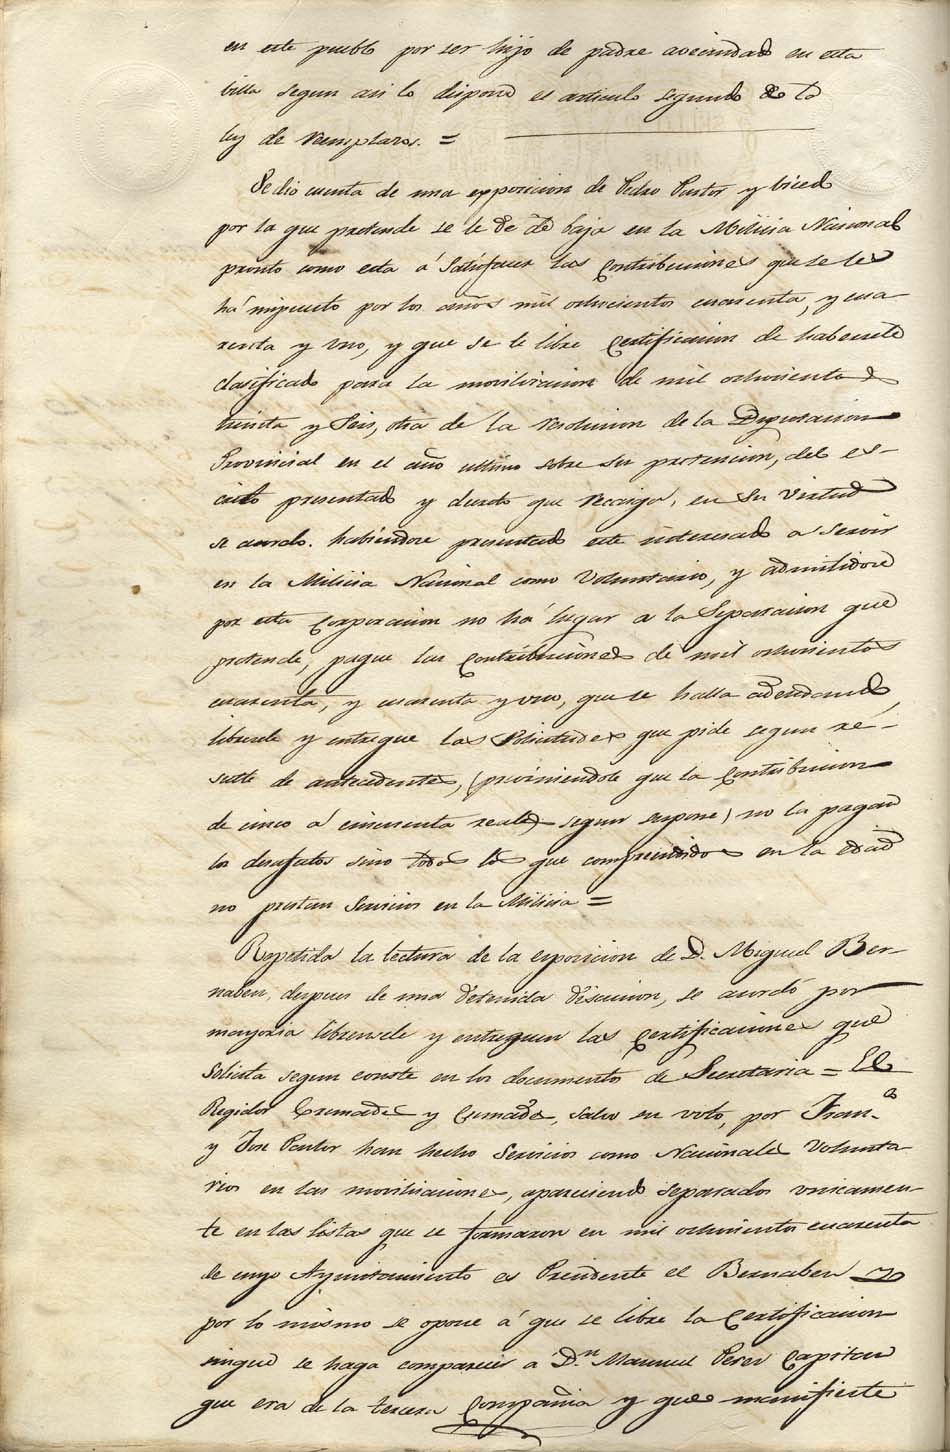 en este pueblo por ser hijo de padre avecindado en esta
villa segun asi lo dispone el articulo segundo de la
ley de reemplazos. =
Se dio cuenta de una exposicion de Pedro Pastor y
por la que pretende se le dé de baja en la Milicia Nacional
pronto como esta á satisfacer las contribuciones que se le
há impuesto por los años mil ochocientos cuarenta, y cua-
renta y uno, y que se le libre certificacion de haberse le
clasificado para la movilizacion de mil ochocientos
treinta y seis, otra de la resolucion de la Diputacion
Provincial en el año ultimo sobre su pretencion, del es-
crito presentado y decreto que recaiga, en su virtud
se acordo. habiendose presentado este interesado a servir
en la Milicia Nacional como voluntario, y admitidose
por esta Corporacion no há lugar a la separacion que
pretende, pague las contribuciones de mil ochocientos
cuarenta, y cuarenta y uno, que se halla adeudando,
librese le y entregue las solicitudes que pide segun re-
sulte de antecedentes, (previniendole que la contribucion
de cinco á cincuenta reales segun supone) no la pagan
los desafectos sino todos los que comprendidos en la edad
no prestan servicios en la Milicia =
Repetida la lectura de la exposicion de D. Miguel Ber-
nabeu, despues de una detenida discucion, se acordó por
mayoria librensele y entreguen las certificaciones que
solicita segun conste en los documentos de Secretaria = El
Regidor y salvo su voto, por Fran.co
y Jose Pastor han hecho servicios como Nacionales volunta-
rios en las movilisaciones, apareciendo separados unicamen-
te en las listas que se formaron en mil ochocientos cuarenta
de cuyo Ayuntamiento es Presidente el Bernabeu y
por lo mismo se opone á que se libre la certificacion
sin que se haga comparecer a D.n Manuel Perez Capitan
que era de la tercera Compañia y que manifieste